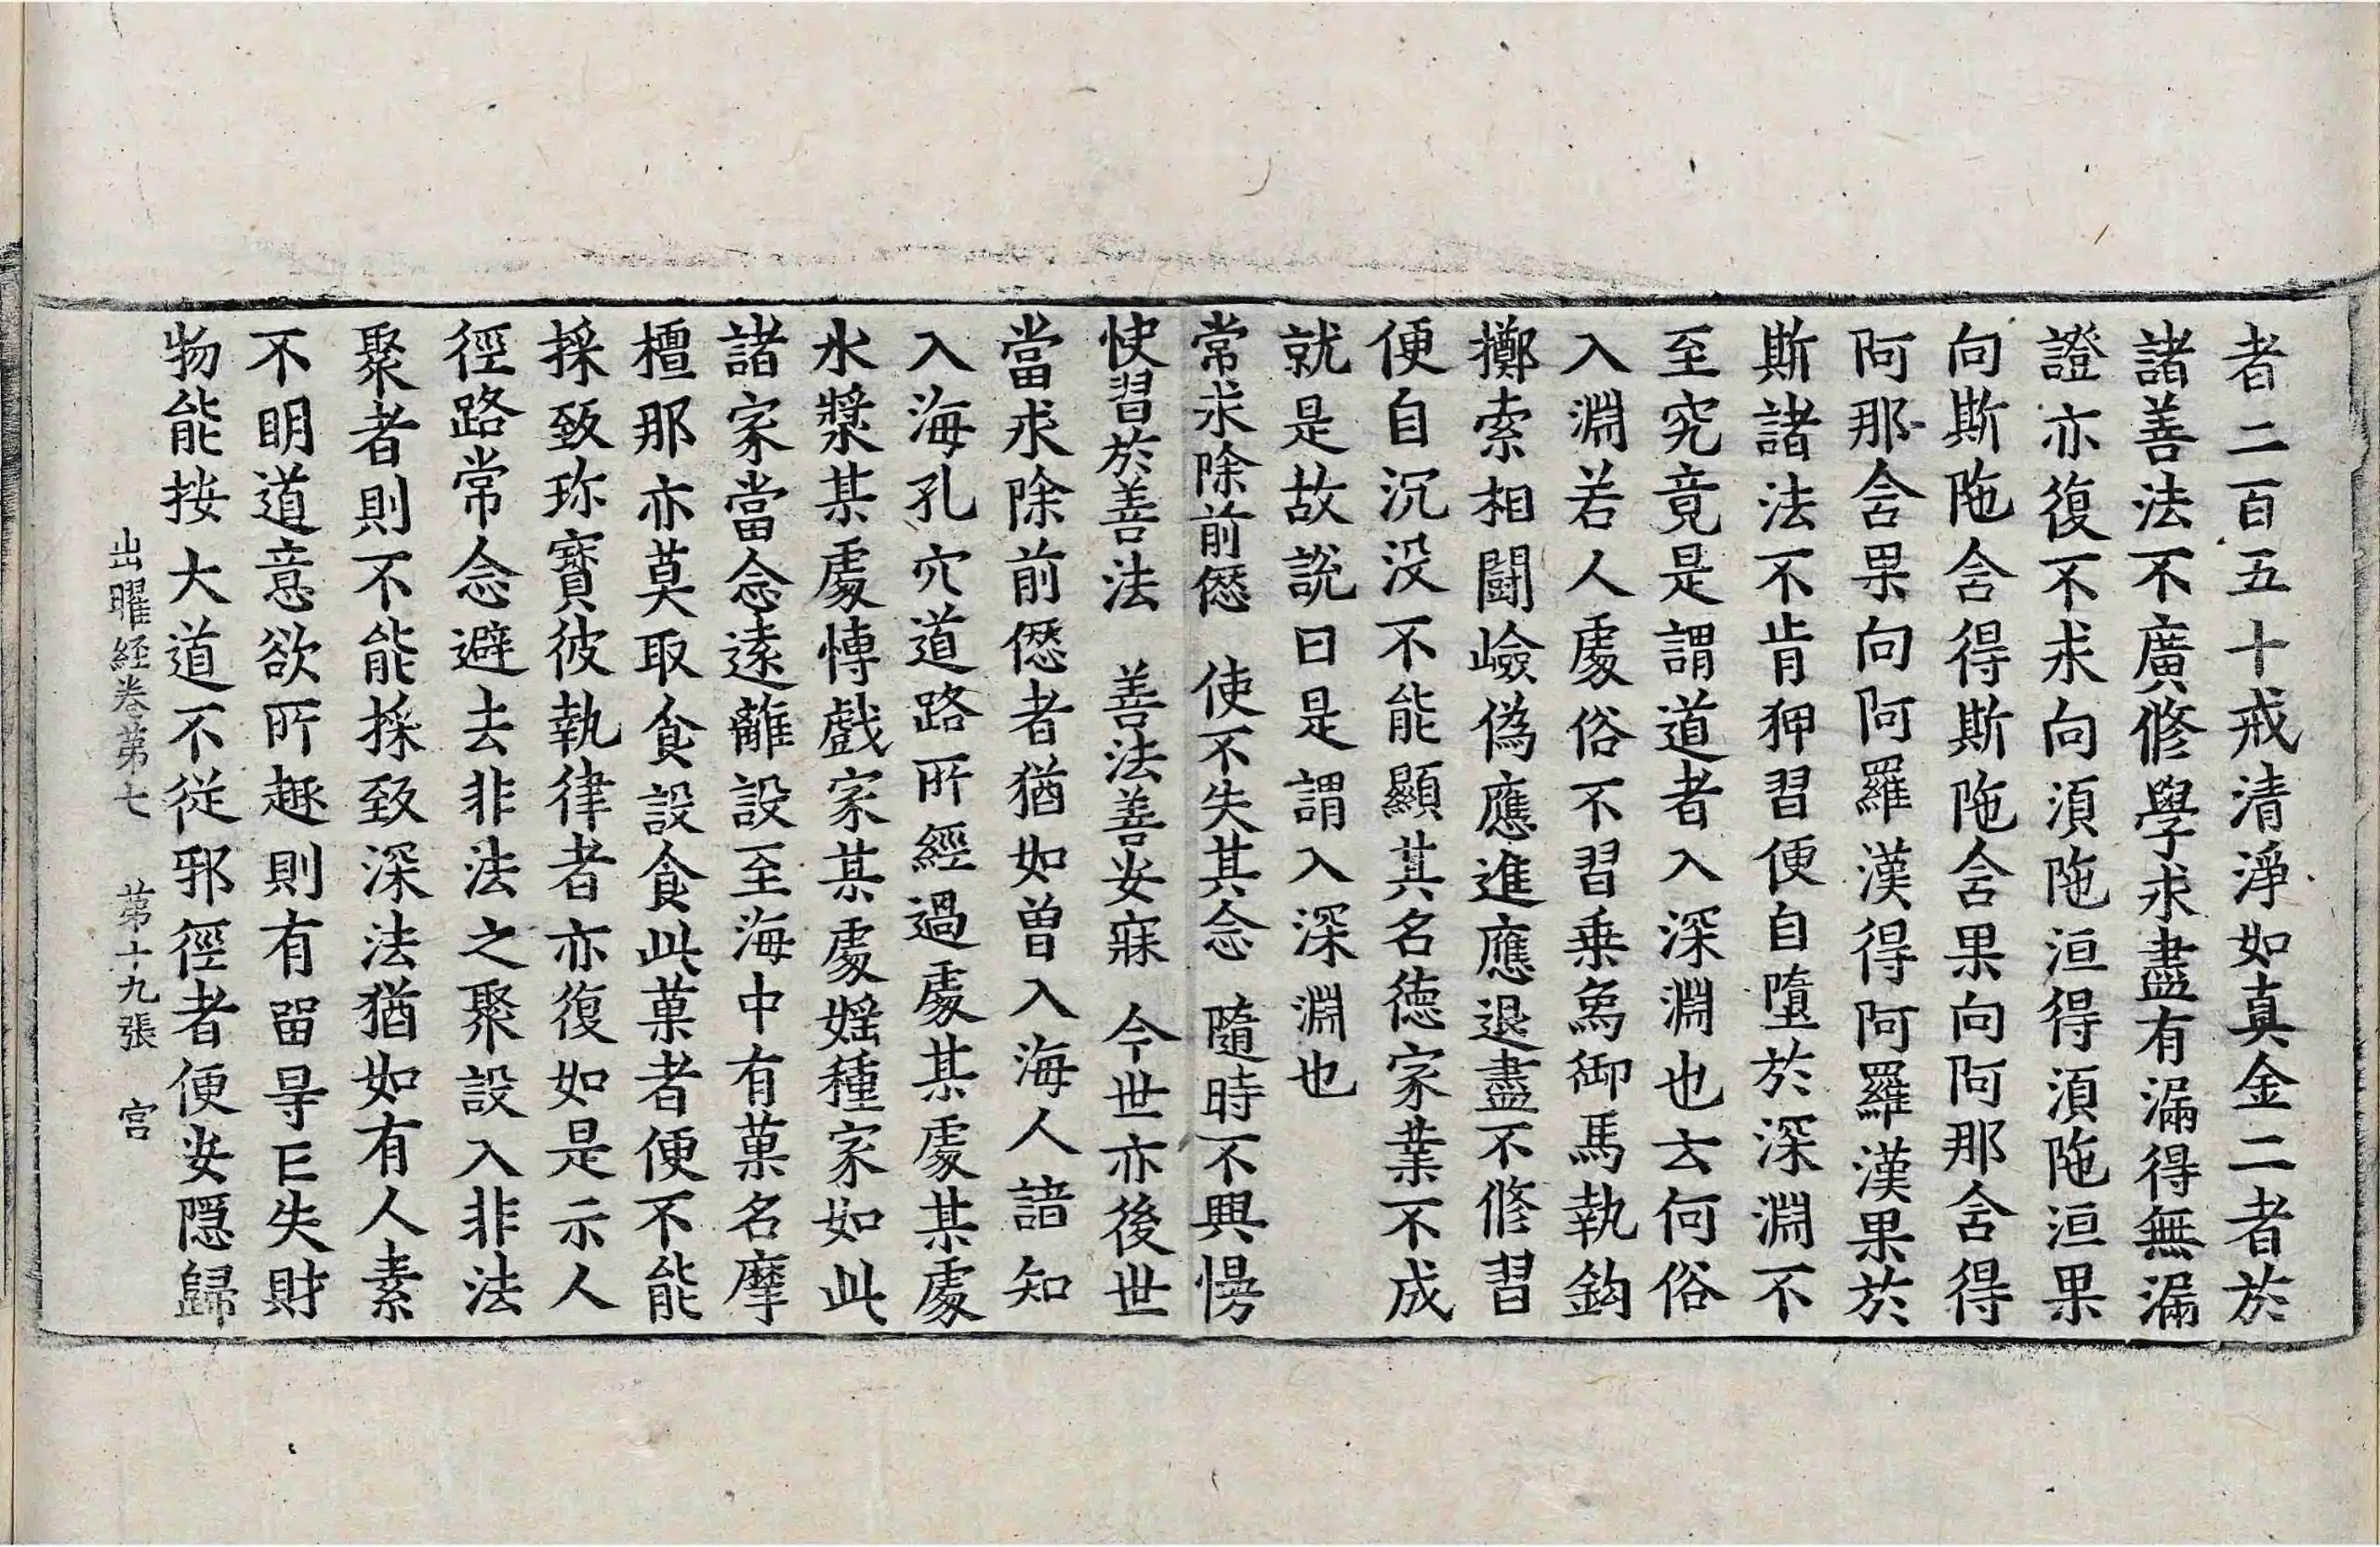 者二百五十戒清淨如真金二者於
諸善法不廣修學求盡有漏得無漏
證亦復不求向湏陁洹得湏陁洹果
向斯陁含得斯陁含果向阿那含得
阿那含果向阿羅漢得阿羅漢果於
斯諸法不肯狎習便自墮於深淵不
至究竟是謂道者入深淵也云何俗
入淵若人處俗不習乗烏御馬執鈎
擲索相鬪嶮偽應進應退盡不修習
便自沉没不能顯其名德家業不成
就是故說曰是謂入深淵也
常求除前𠎝　使不失其念　隨時不興慢
快習於善法　善法善安寐　今世亦後世
當求除前𠎝者猶如曽入海人諳知
入海孔穴道路所經過處某處某處
水漿某處愽戲家某處婬種家如此
諸家當念遠離設至海中有菓名摩
檀那亦莫取食設食此菓者便不能
採致珎寳彼執律者亦復如是示人
徑路常念避去非法之聚設入非法
聚者則不能採致深法猶如有人素
不明道意欲所趣則有留㝵亡失財
物能按大道不從邪徑者便安隱歸
出曜経卷苐七　苐十九張　宫